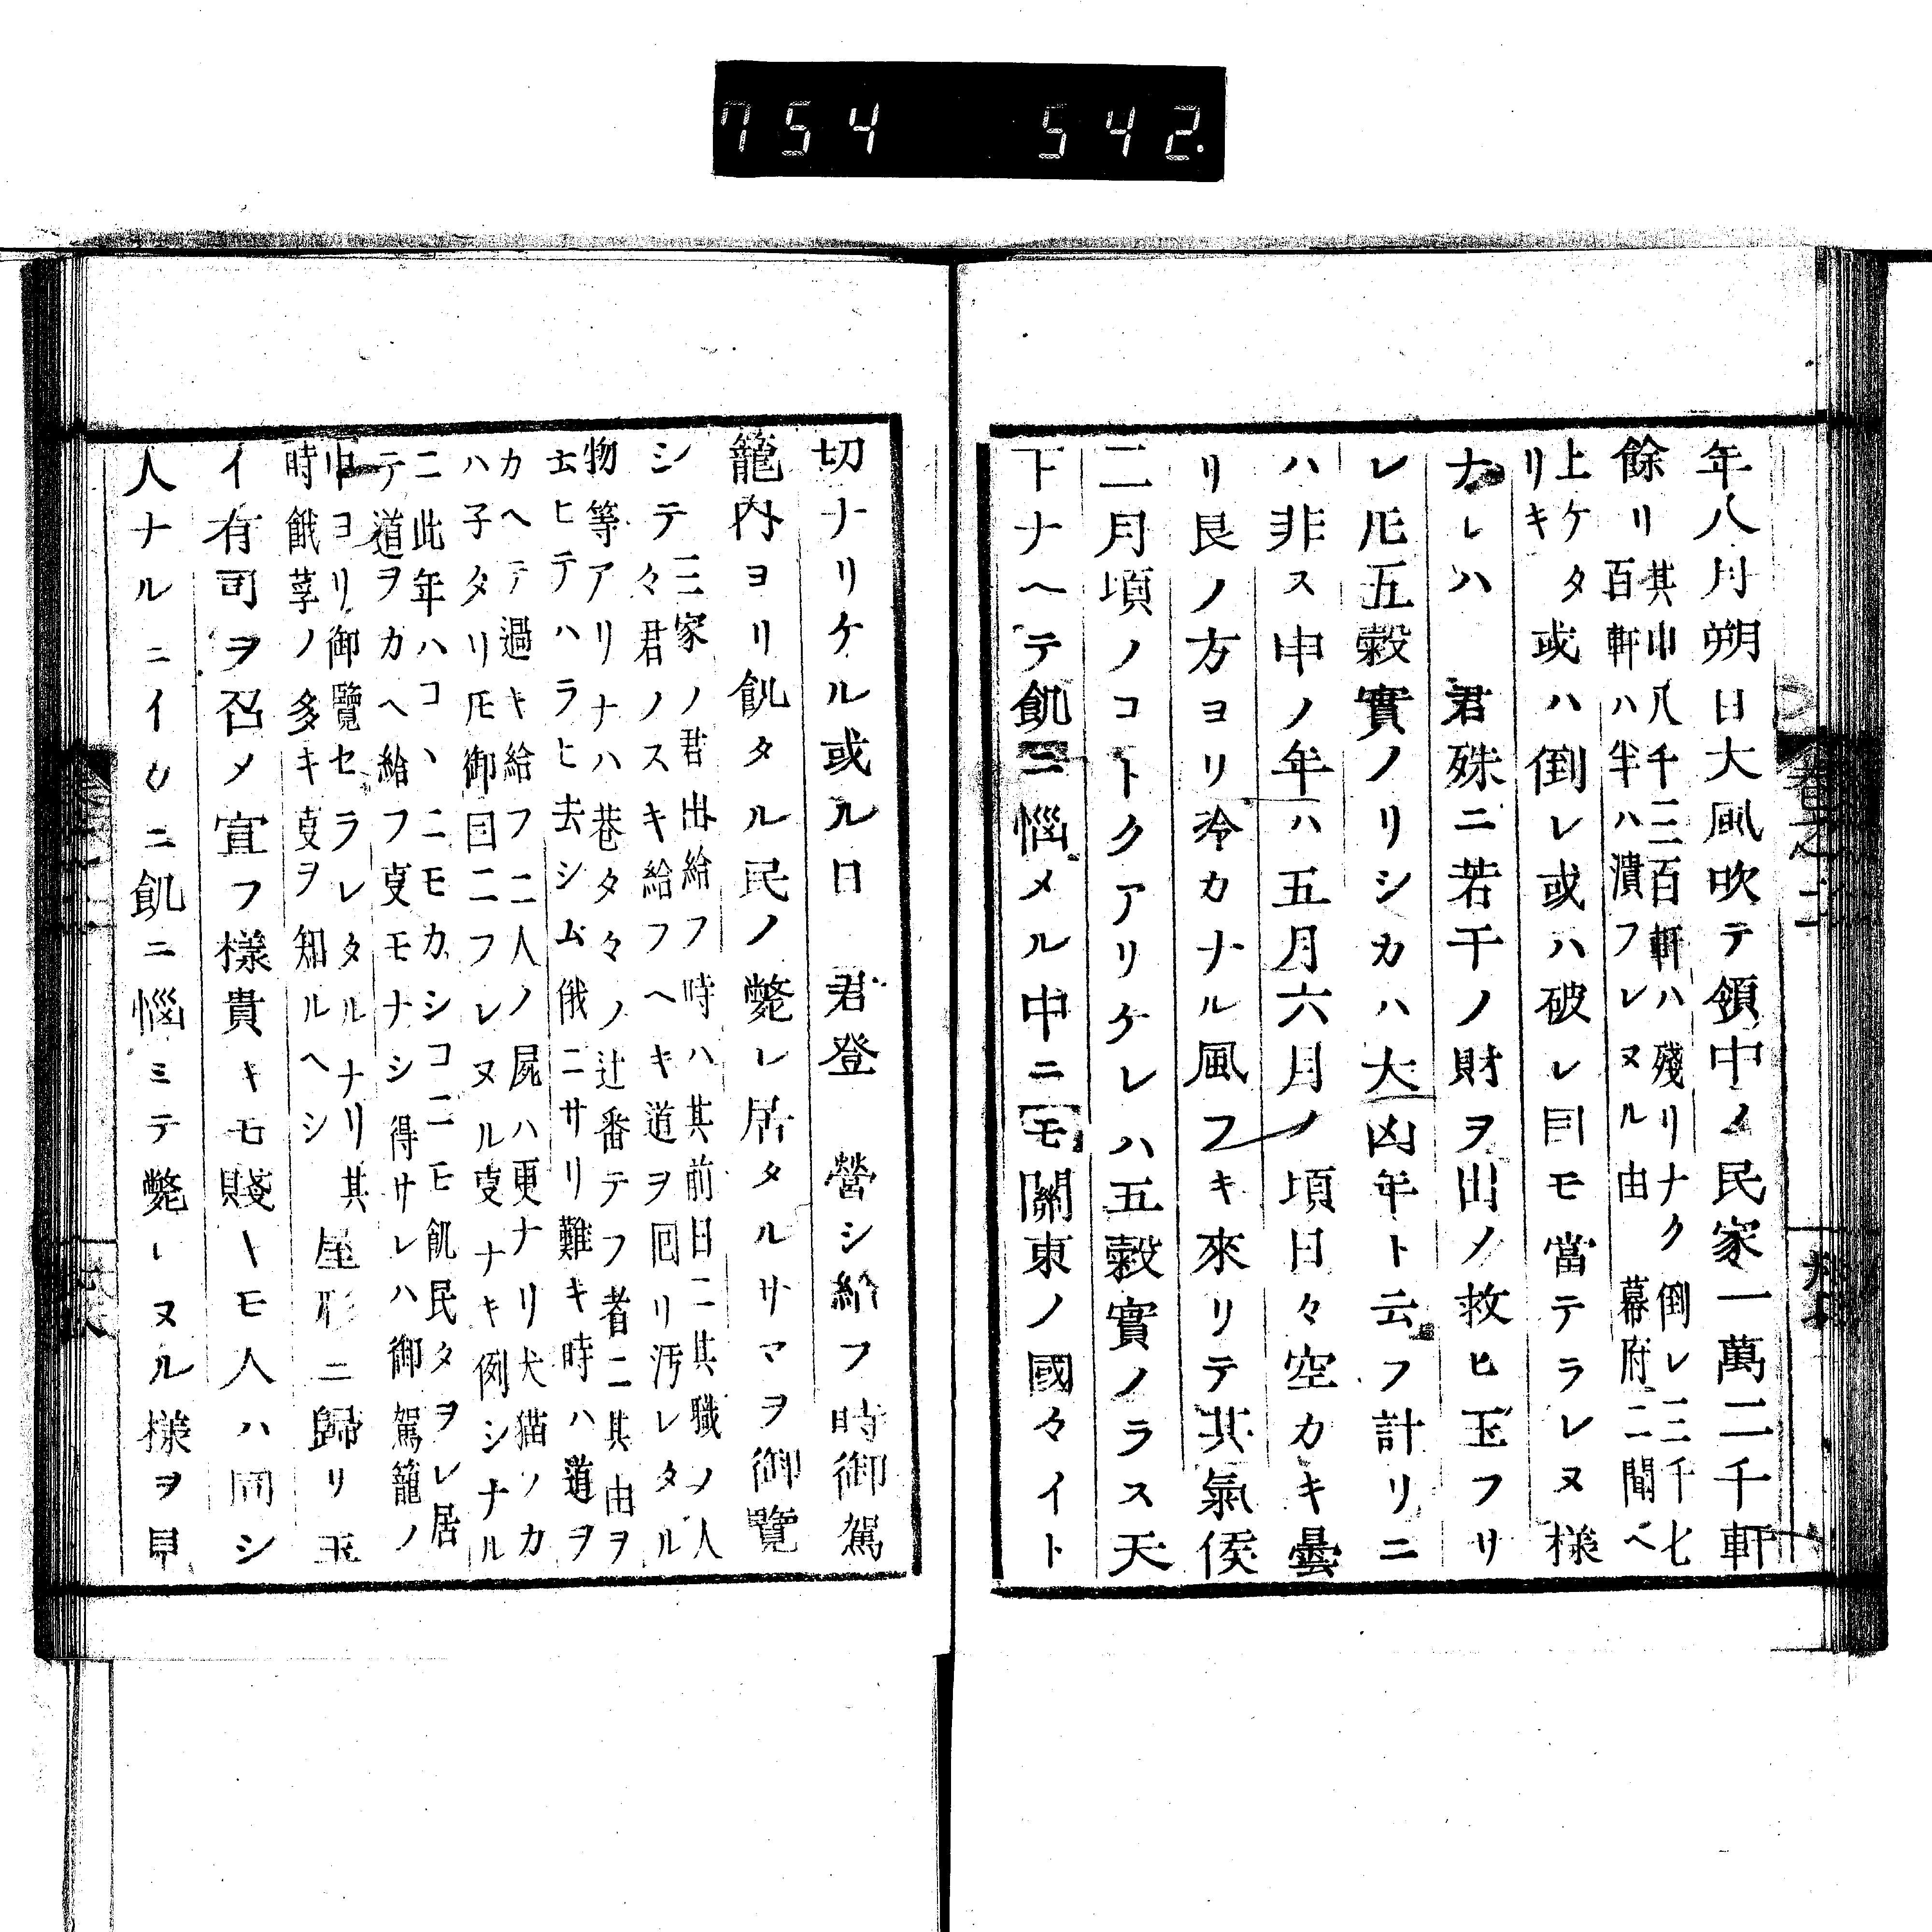 754 542.
年八月朔日大風吹テ領中ノ民家一萬二千軒
餘リ
其中八千三百軒ハ殘リナク倒レ三千七
百軒ハ半ハ潰フレヌル由 幕府ニ聞ベ
上ケタ
リキ
或ハ倒レ或ハ破レ目モ當テラレヌ様
ナレハ 君殊ニ若干ノ財ヲ出ノ救ヒ玉フサ
レ𪜈五穀實ノリシカハ大凶年ト云フ計リニ
ハ非ス申ノ年ハ五月六月ノ頃日々空カキ曇
リ艮ノ方ヨリ冷カナル風フキ來リテ其氣候
二月頃ノコトクアリケレハ五穀實ノラス天
下ナヘテ飢ニ惱メル中ニモ關東ノ國々イト
切ナリケル或ル日 君登 營シ給フ時御駕
籠内ヨリ飢タル民ノ斃レ居タルサマヲ御覽
シテ
三家ノ君出給フ時ハ其前日ニ其職ノ人
々君ノスキ給フヘキ道ヲ囘リ汚レタル
物等アリナハ巷タ々ノ辻番テフ者ニ其由ヲ
云ヒテハラヒ去シム俄ニサリ難キ時ハ道ヲ
カヘテ過キ給フニ人ノ屍ハ更ナリ犬猫ノカ
ハ子タリ𪜈御目ニフレヌル叓ナキ例シナル
ニ此年ハコヽニモカシコニモ飢民タヲレ居
テ道ヲカヘ給フ叓モナシ得サレハ御駕籠ノ
中ヨリ御覽セラレタルナリ其
時餓莩ノ多キ叓ヲ知ルヘシ
屋形ニ歸リ玉
イ有司ヲ召メ宣フ様貴キモ賤キモ人ハ同シ
人ナルニイカニ飢ニ惱ミテ斃レヌル様ヲ見